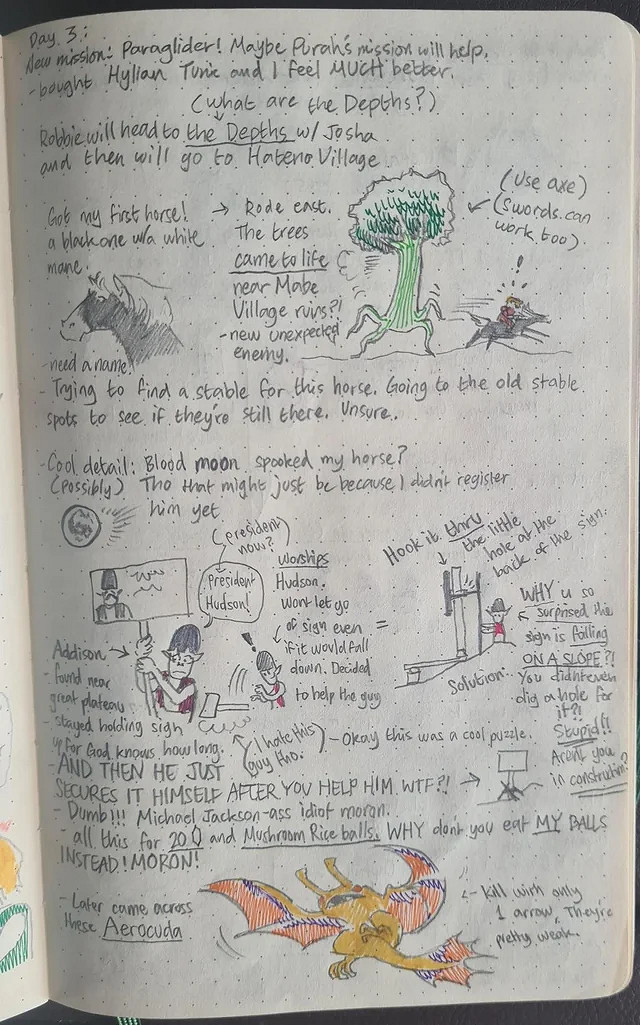 Day 3.:
New mission: Paraglider! Maybe Purah's mission will help.
- bought Hylian Tunic and I feel MUCH better.
(what are the Depths?)
Robbie will head to the Depths w/ Josha
and then will go to Hateno Village
Got my first horse!
a black one w/a white
mane.
- need a name!
→ Rode east.
The trees
came to life
near Mabe
Village ruins?!
- new unexpected
enemy.
(Use axe)
(Swords can
work too)
!
- Trying to find a stable for this horse. Going to the old stable
spots to see if they're still there. Unsure.
- Cool detail: Blood moon spooked my horse?
(Possibly) Tho that might just be because I didn't register
him yet
(president
now?)
President
Hudson!
Addison →
- found near
great plateau
- stayed holding sign
up for God knows how long.
worships
Hudson.
Wont let go
of sign even
if it would fall
down. Decided
to help the guy
!
(I hate this
guy tho.)
=
Hook it thru
the little
hole at the
back of the sign.
Solution
WHY u so
surprised the
sign is falling
ON A SLOPE?!
You didn't even
dig a hole for
it?!
Stupid!!
Aren't you
in construction?
- Okay this was a cool puzzle.
- AND THEN HE JUST
SECURES IT HIMSELF AFTER YOU HELP HIM. WTF?! →
- Dumb!!! Michael Jackson-ass idiot moron.
- all this for 20 and Mushroom Rice balls. WHY don't you eat MY BALLS
INSTEAD! MORON!
- Later came across
these Aerocuda
← Kill with only
1 arrow, They're
pretty weak.